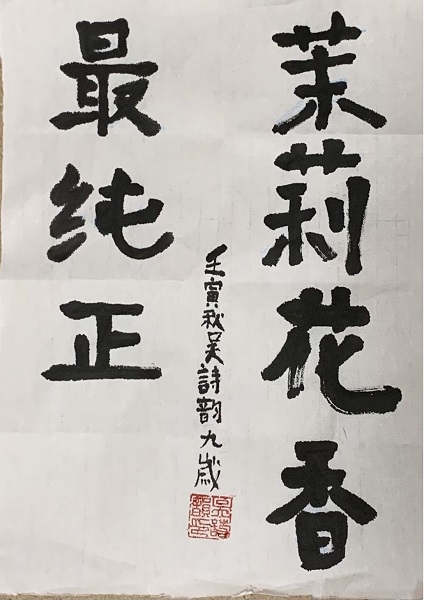 茉莉花香
最纯正
壬寅秋吴詩韵九歲